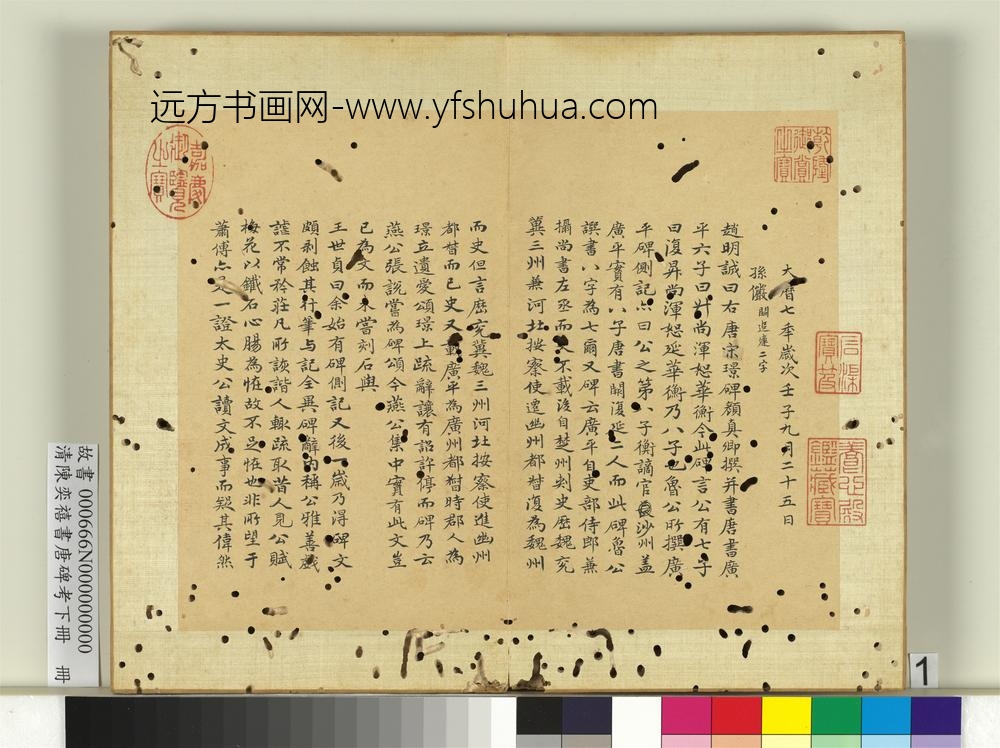 远方书画网-www.yfshuhua.com
大曆七年歲次壬子九月二十五日
孫儼 關追建二字
趙明誠曰右唐宋璟碑顏真卿撰并書唐書廣
平六子曰昇尚渾恕華衡今此碑言公有七子
曰復昇尚渾恕延華衡乃八子也魯公所撰廣
平碑側記亦曰公之第八子衡謫官沙州蓋
廣平實有八子唐書闕復延二人而此碑魯公
譔書八字為七爾又碑云廣平自吏部侍郎兼
攝尚書左丞而史不載後自楚州刺史歷魏兗
冀三州兼河北按察使遷幽州都督復為魏州
而史但言歷兗冀魏三州河北按察使進幽州
都督而已史又載廣平為廣州都督時郡人為
璟立遺愛頌璟上疏辭讓有詔許停而碑乃云
燕公張說嘗為碑頌今燕公集中實有此文豈
已為文而未嘗刻石與
王世貞曰余始有碑側記又後一歲乃得碑文
頗剥蝕其行筆與記全異碑辭內稱公雅善戲
謔不常矜莊凡所詼諧人輒疏取昔人見公賦
梅花以鐵石心腸為怪故不足怪也非所望于
蕭傅亦是一證太史公讀文成事而疑其偉然
乾隆御賞之寶
嘉慶御覽之寶
養心殿鑑藏寶
故書 000666N000000000
清陳奕禧書唐碑考下冊 冊
1